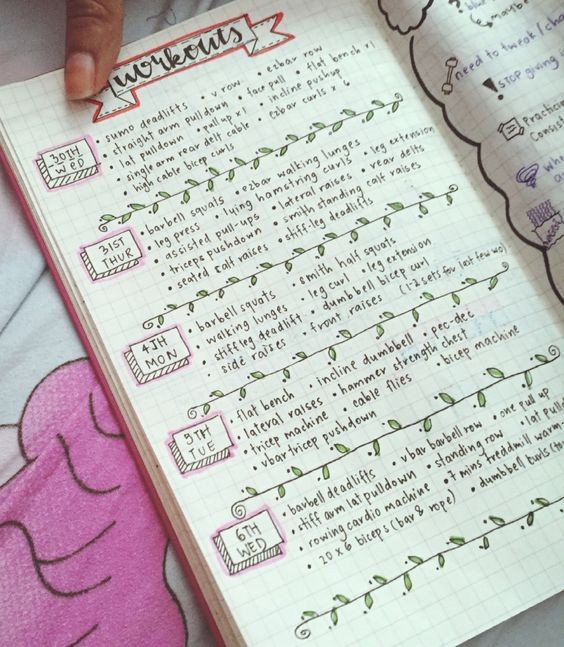 workouts
30TH
WED
• sumo deadlifts • v row • ezbar row
• straight arm pulldown • face pull • flat bench x1
• lat pulldown • pull up x1 • incline pushup
• single arm rear delt cable • ezbar curls x 6
• high cable bicep curls
31ST
THUR
• barbell squats • ezbar walking lunges • leg extension
• leg press • lying hamstring curls • rear delts
• assisted pull-ups • lateral raises
• triceps pushdown • smith standing calf raises
• seated calf raises • stiff-leg deadlifts
4TH
MON
• barbell squats • smith half squats
• walking lunges • leg curl • leg extension
• stiff leg deadlift • dumbbell bicep curl
• side raises • front raises (1-2 sets for last few wo)
5TH
TUE
• flat bench • incline dumbbell • pec-dec
• lateral raises • hammer strength chest
• tricep machine • cable flies • bicep machine
• vbar tricep pushdown
6TH
WED
• barbell deadlifts • vbar barbell row • one pull up
• stiff arm lat pulldown • standing row • lat
• rowing cardio machine • 7 mins treadmill warm
• 20 x 6 biceps (bar & rope) • dumbbell curls
maybe
need to tweak /
stop giving
Practicing
Consist
whe